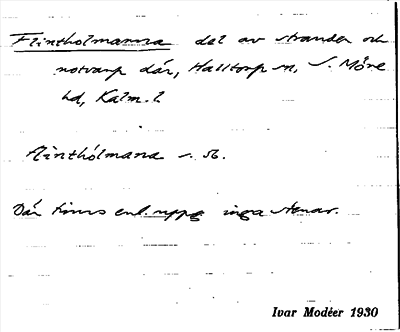 Flintholmarna del av stranden och
notvarp där, Halltorp sn, S. Möre
hd, Kalm. l.
flinthólmana
Där finns enl. uppg inga stenar.
Ivar Modéer 1930